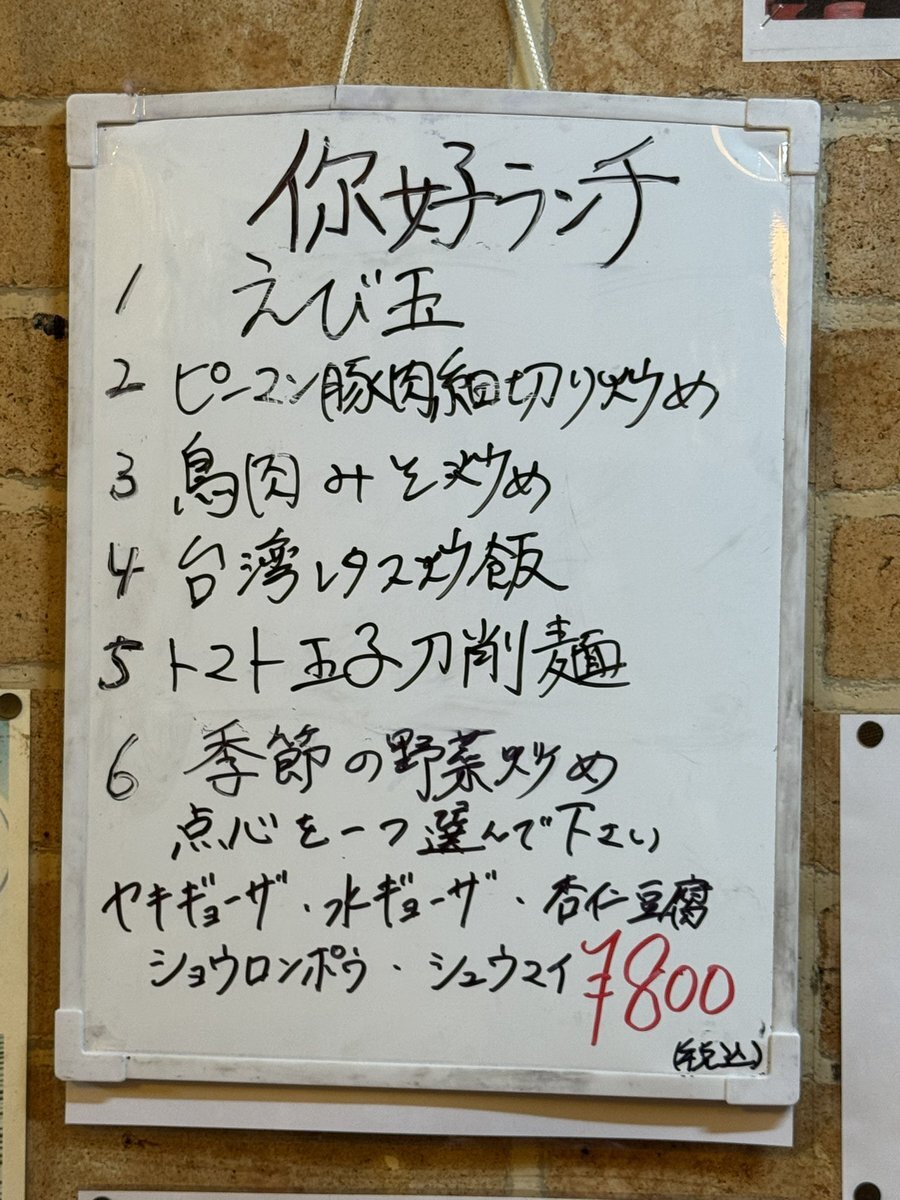 你好ランチ
1 えび玉
2 ピーマン豚肉細切り炒め
3 鳥肉みそ炒め
4 台湾レタス炒飯
5 トマト玉子刀削麺
6 季節の野菜炒め
点心を一つ選んで下さい
ヤキギョーザ・水ギョーザ・杏仁豆腐
ショウロンポウ・シュウマイ ¥800
(税込)